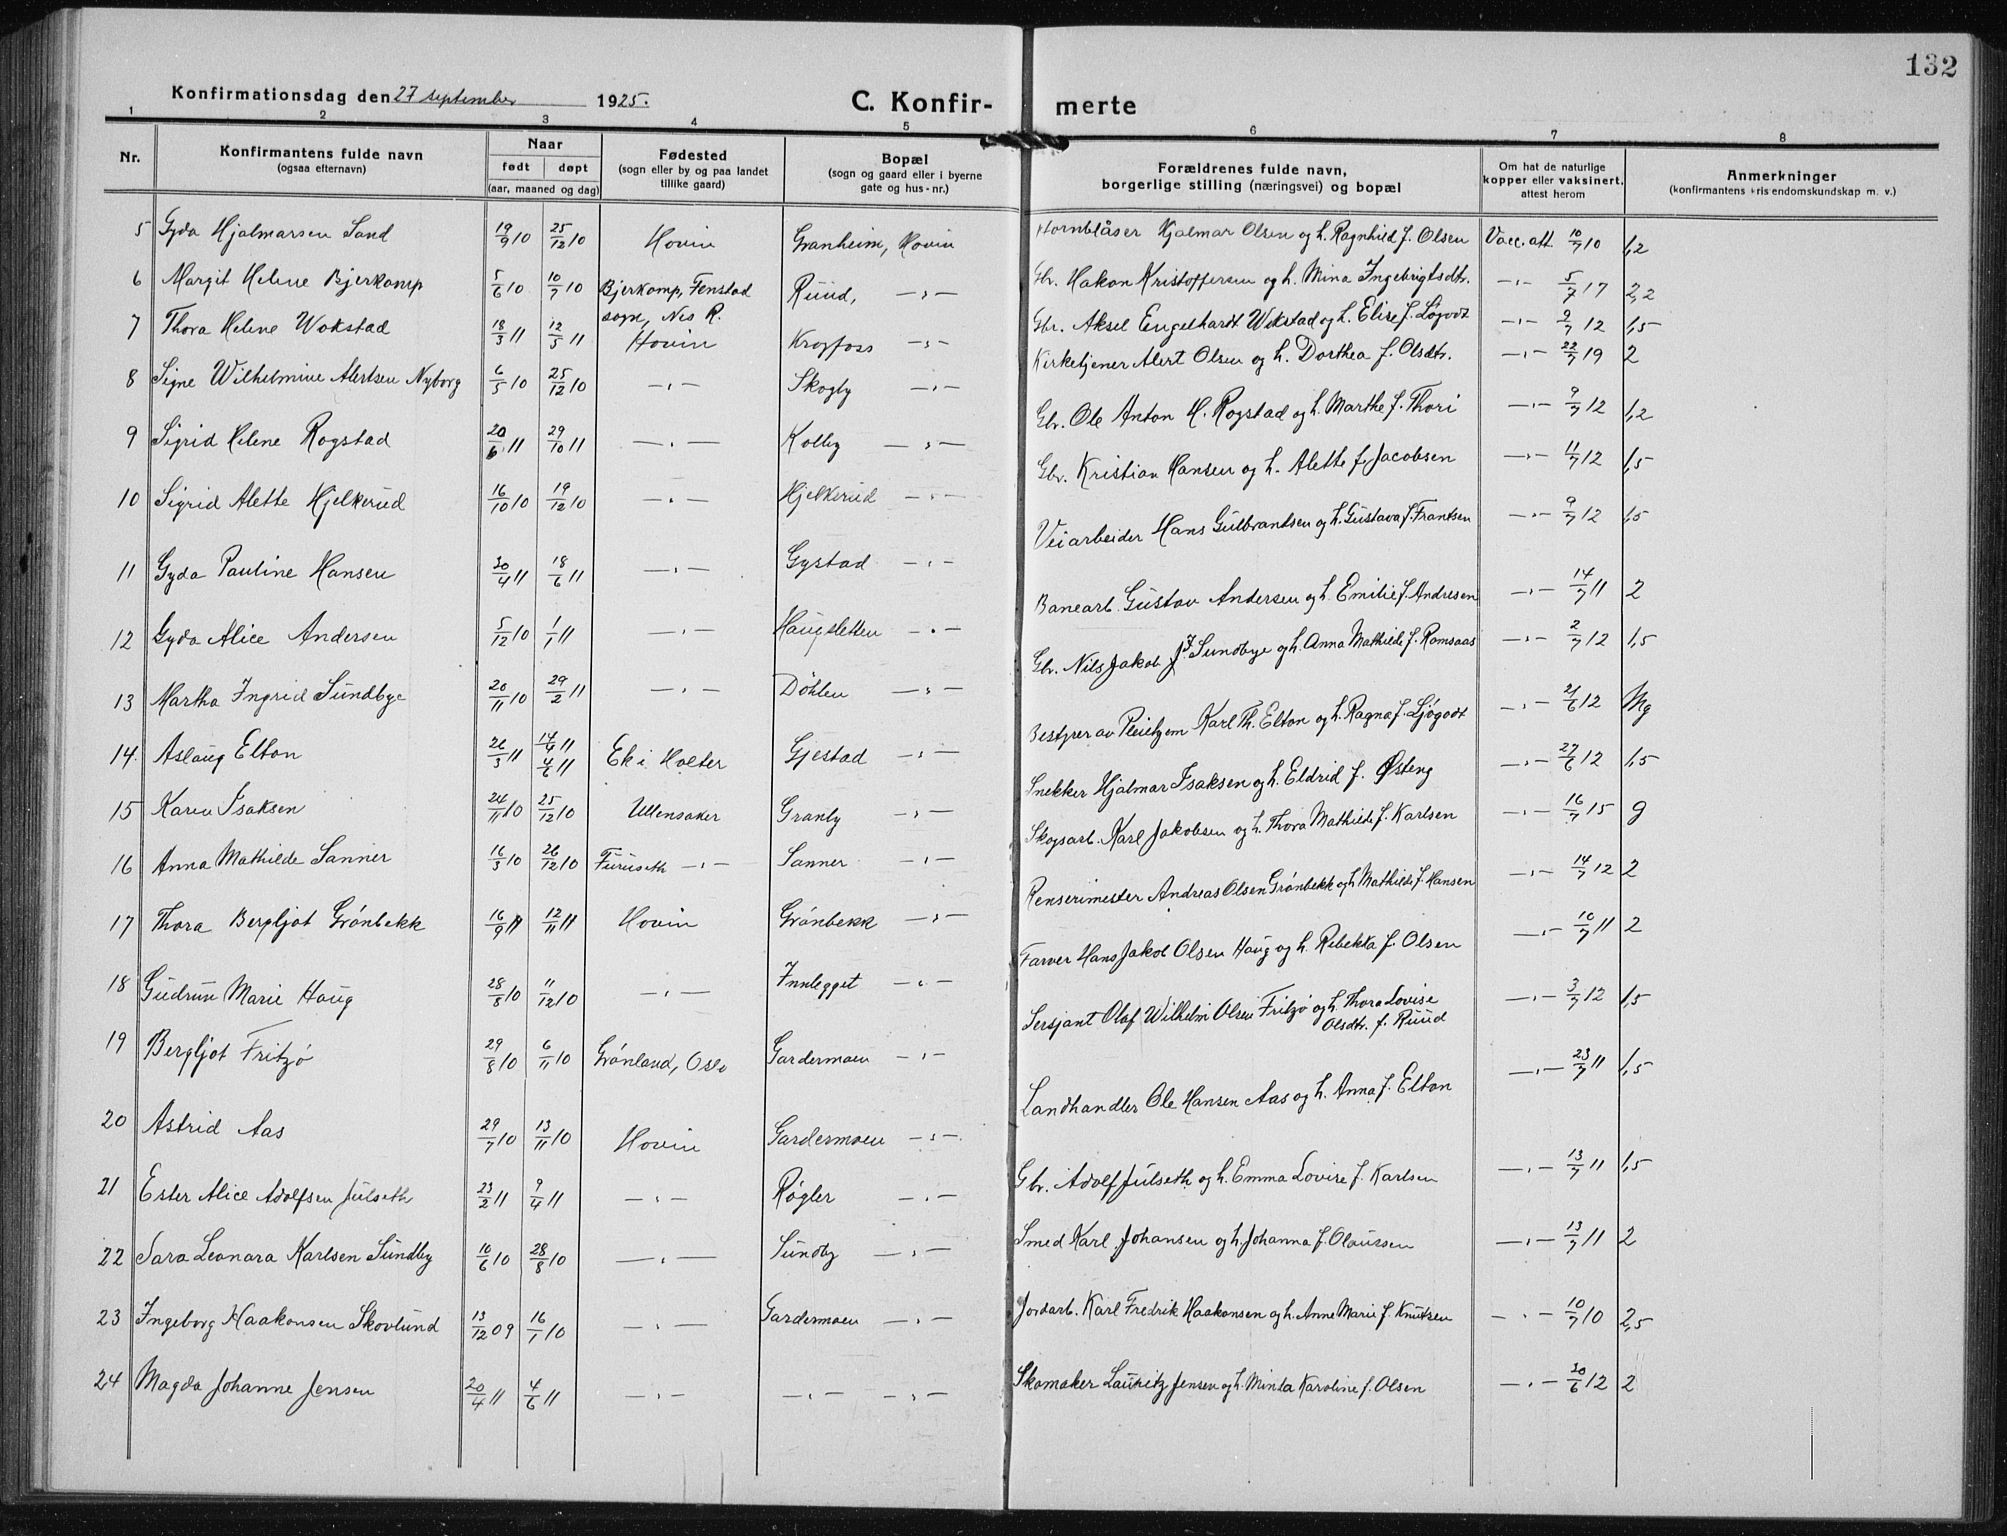 132
Konfirmationsdag den 27 september 1925.
C. Konfir- merte
1 2 3 4 5 6 7 8
Nr. Konfirmantens fulde navn (ogsaa efternavn) Naar født døpt (aar, maaned og dag) Fødested (sogn eller by og paa landet tillike gaard) Bopæl (sogn og gaard eller i byerne gate og hus-nr.) Forældrenes fulde navn, borgerlige stilling (næringsvei) og bopæl Om hat de naturlige kopper eller vaksinert, attest herom Anmerkninger (konfirmantens kristendomskundskap m. v.)
5 Gyda Hjalmarsen Sand 19/9 10 25/12 10 Hovin Granheim, Hovin Hornblåser Hjalmar Olsen og h. Ragnhild f. Olsen Vacc. att. 10/7 10 1,2
6 Margit Helene Bjerkamp 5/6 10 10/7 10 Bjerkamp, Fenstad sogn, Nes R. Ruud, —〃— Gbr. Hakon Kristoffersen og h. Mina Ingebrigtsdtr. —〃— 5/7 17 2,2
7 Thora Helene Wokstad 18/3 11 12/5 11 Hovin Krogfoss —〃— Gbr. Aksel Engelhardt Wokstad og h. Elise f. Løgodt —〃— 2/7 12 1,5
8 Signe Wilhelmine Alertsen Nyborg 6/5 10 25/12 10 —〃— Skogly —〃— Kirketjener Alert Olsen og h. Dorthea f. Olsdtr. —〃— 22/7 19 2
9 Sigrid Helene Rogstad 20/6 11 29/10 11 —〃— Kolby —〃— Gbr. Ole Anton H. Rogstad og h. Marthe f. Thori —〃— 9/7 12 1,2
10 Sigrid Alette Hjelkerud 16/10 10 19/12 10 —〃— Hjelkerud —〃— Gbr. Kristian Hansen og h. Alette f. Jacobsen —〃— 11/7 12 1,5
11 Gyda Pauline Hansen 30/4 11 18/6 11 —〃— Gystad —〃— Veiarbeider Hans Gulbrandsen og h. Gustava f. Frantsen —〃— 9/7 12 1,5
12 Gyda Alice Andersen 5/12 10 1/1 11 —〃— Haugsletten —〃— Banearb. Gustav Andersen og h. Emilie f. Andresen —〃— 14/7 11 2
13 Martha Ingrid Sundbye 20/11 10 29/2 11 —〃— Døhlen —〃— Gbr. Nils Jakob J. Sundbye og h. Anna Mathilde f. Romsaas —〃— 2/7 12 1,5
14. Aslaug Elton 26/3 11 14/4 11 4/6 11 Ek i Holter Gjestad —〃— Bestyrer av Pleiehjem Karl Th. Elton og h. Ragna f. Ljøgodt —〃— 21/6 12 Mg
15 Karen Isaksen 24/11 10 25/12 10 Ullensaker Granly —〃— Snekker Hjalmar Isaksen og h. Eldrid f. Østeng —〃— 27/6 12 1,5
16 Anna Mathilde Sanner 16/3 10 26/12 10 Furuseth —〃— Sanner —〃— Skogsarb. Karl Jakobsen og h. Thora Mathilde f. Karlsen —〃— 16/7 15 g
17 Thora Bergljot Grönbekk 16/9 11 12/11 11 Hovin Grönbekk —〃— Renserimester Andreas Olsen Grönbekk og h Mathilde f. Hansen —〃— 14/7 12 2
18 Gudrun Marie Haug 28/8 10 11/12 10 —〃— Innlegget —〃— Farver Hans Jakob Olsen Haug og h. Rebekka f. Olsen —〃— 10/7 11 2
19 Bergljot Fritzö 29/8 10 6/11 10 Grönland, Oslo Gardermoen —〃— Sersjant Olaf Wilhelm Olsen Fritzö og h. Thora Lovise Olsdtr. f. Ruud —〃— 3/7 12 1,5
20 Astrid Aas 29/7 10 13/11 10 Hovin Gardermoen —〃— Landhandler Ole Hansen Aas og h. Anna f. Elton —〃— 23/7 11 1,5
21 Ester Alice Adolfsen Julseth 23/2 11 9/4 11 —〃— Røgler —〃— Gbr. Adolf Julseth og h. Emma Lovise f. Karlsen —〃— 13/7 11 1,5
22 Sara Leonara Karlsen Sundby 10/6 10 28/8 10 —〃— Sundby —〃— Smed Karl Johansen og h. Johanna f. Olaussen —〃— 13/7 11 2
23 Ingeborg Haakonsen Skovlund 13/12 09 16/1 10 —〃— Gardermoen —〃— Jordarb. Karl Fredrik Haakonsen og h. Anne Marie f. Knutsen —〃— 10/7 10 2,5
24 Magda Johanne Jensen 20/4 11 4/6 11 —〃— —〃— —〃— Skomaker Lauritz Jensen og h. Minda Karoline f. Olsen —〃— 20/6 12 2